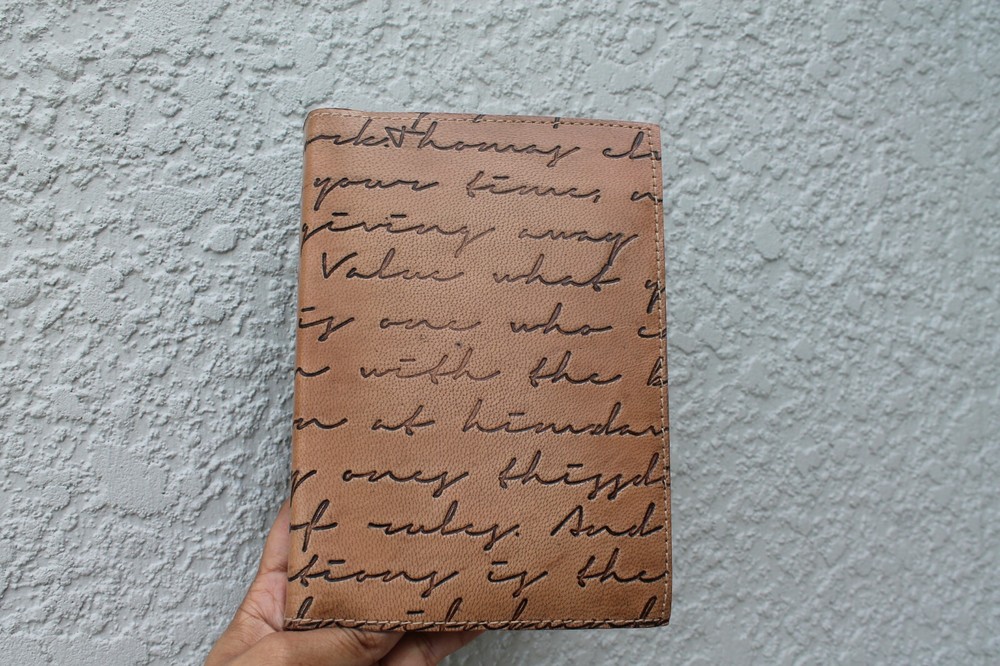 rk. Thomas ch
your time,
giving away
Value what y
is one who c
with the b
at him
ones
of rules. And
tions is the